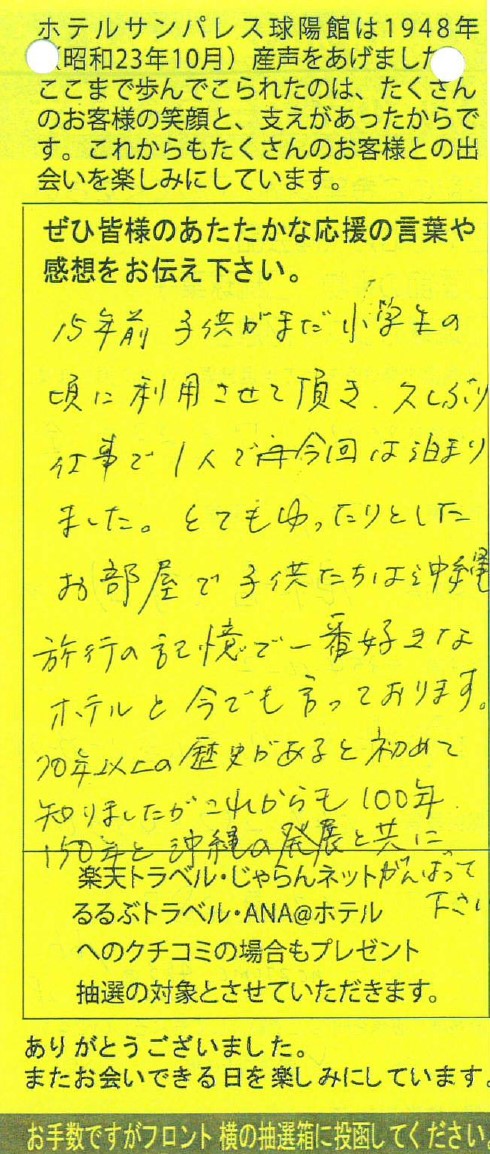 ホテルサンパレス球陽館は1948年
(昭和23年10月）産声をあげました
ここまで歩んでこられたのは、たくさん
のお客様の笑顔と、支えがあったからで
す。これからもたくさんのお客様との出
会いを楽しみにしています。
ぜひ皆様のあたたかな応援の言葉や
感想をお伝え下さい。
15年前 子供がまだ小学生の
頃に利用させて頂き、久しぶり
仕事で1人で今回は泊まり
ました。とてもゆったりとした
お部屋で子供たちは沖縄
旅行の記憶で一番好きな
ホテルと今でも言っております。
70年以上の歴史があると初めて
知りましたがこれからも100年、
150年と沖縄の発展と共に
がんばって
下さい
楽天トラベル・じゃらんネット
るるぶトラベル・ANA@ホテル
へのクチコミの場合もプレゼント
抽選の対象とさせていただきます。
ありがとうございました。
またお会いできる日を楽しみにしています。
お手数ですがフロント横の抽選箱に投函してください。